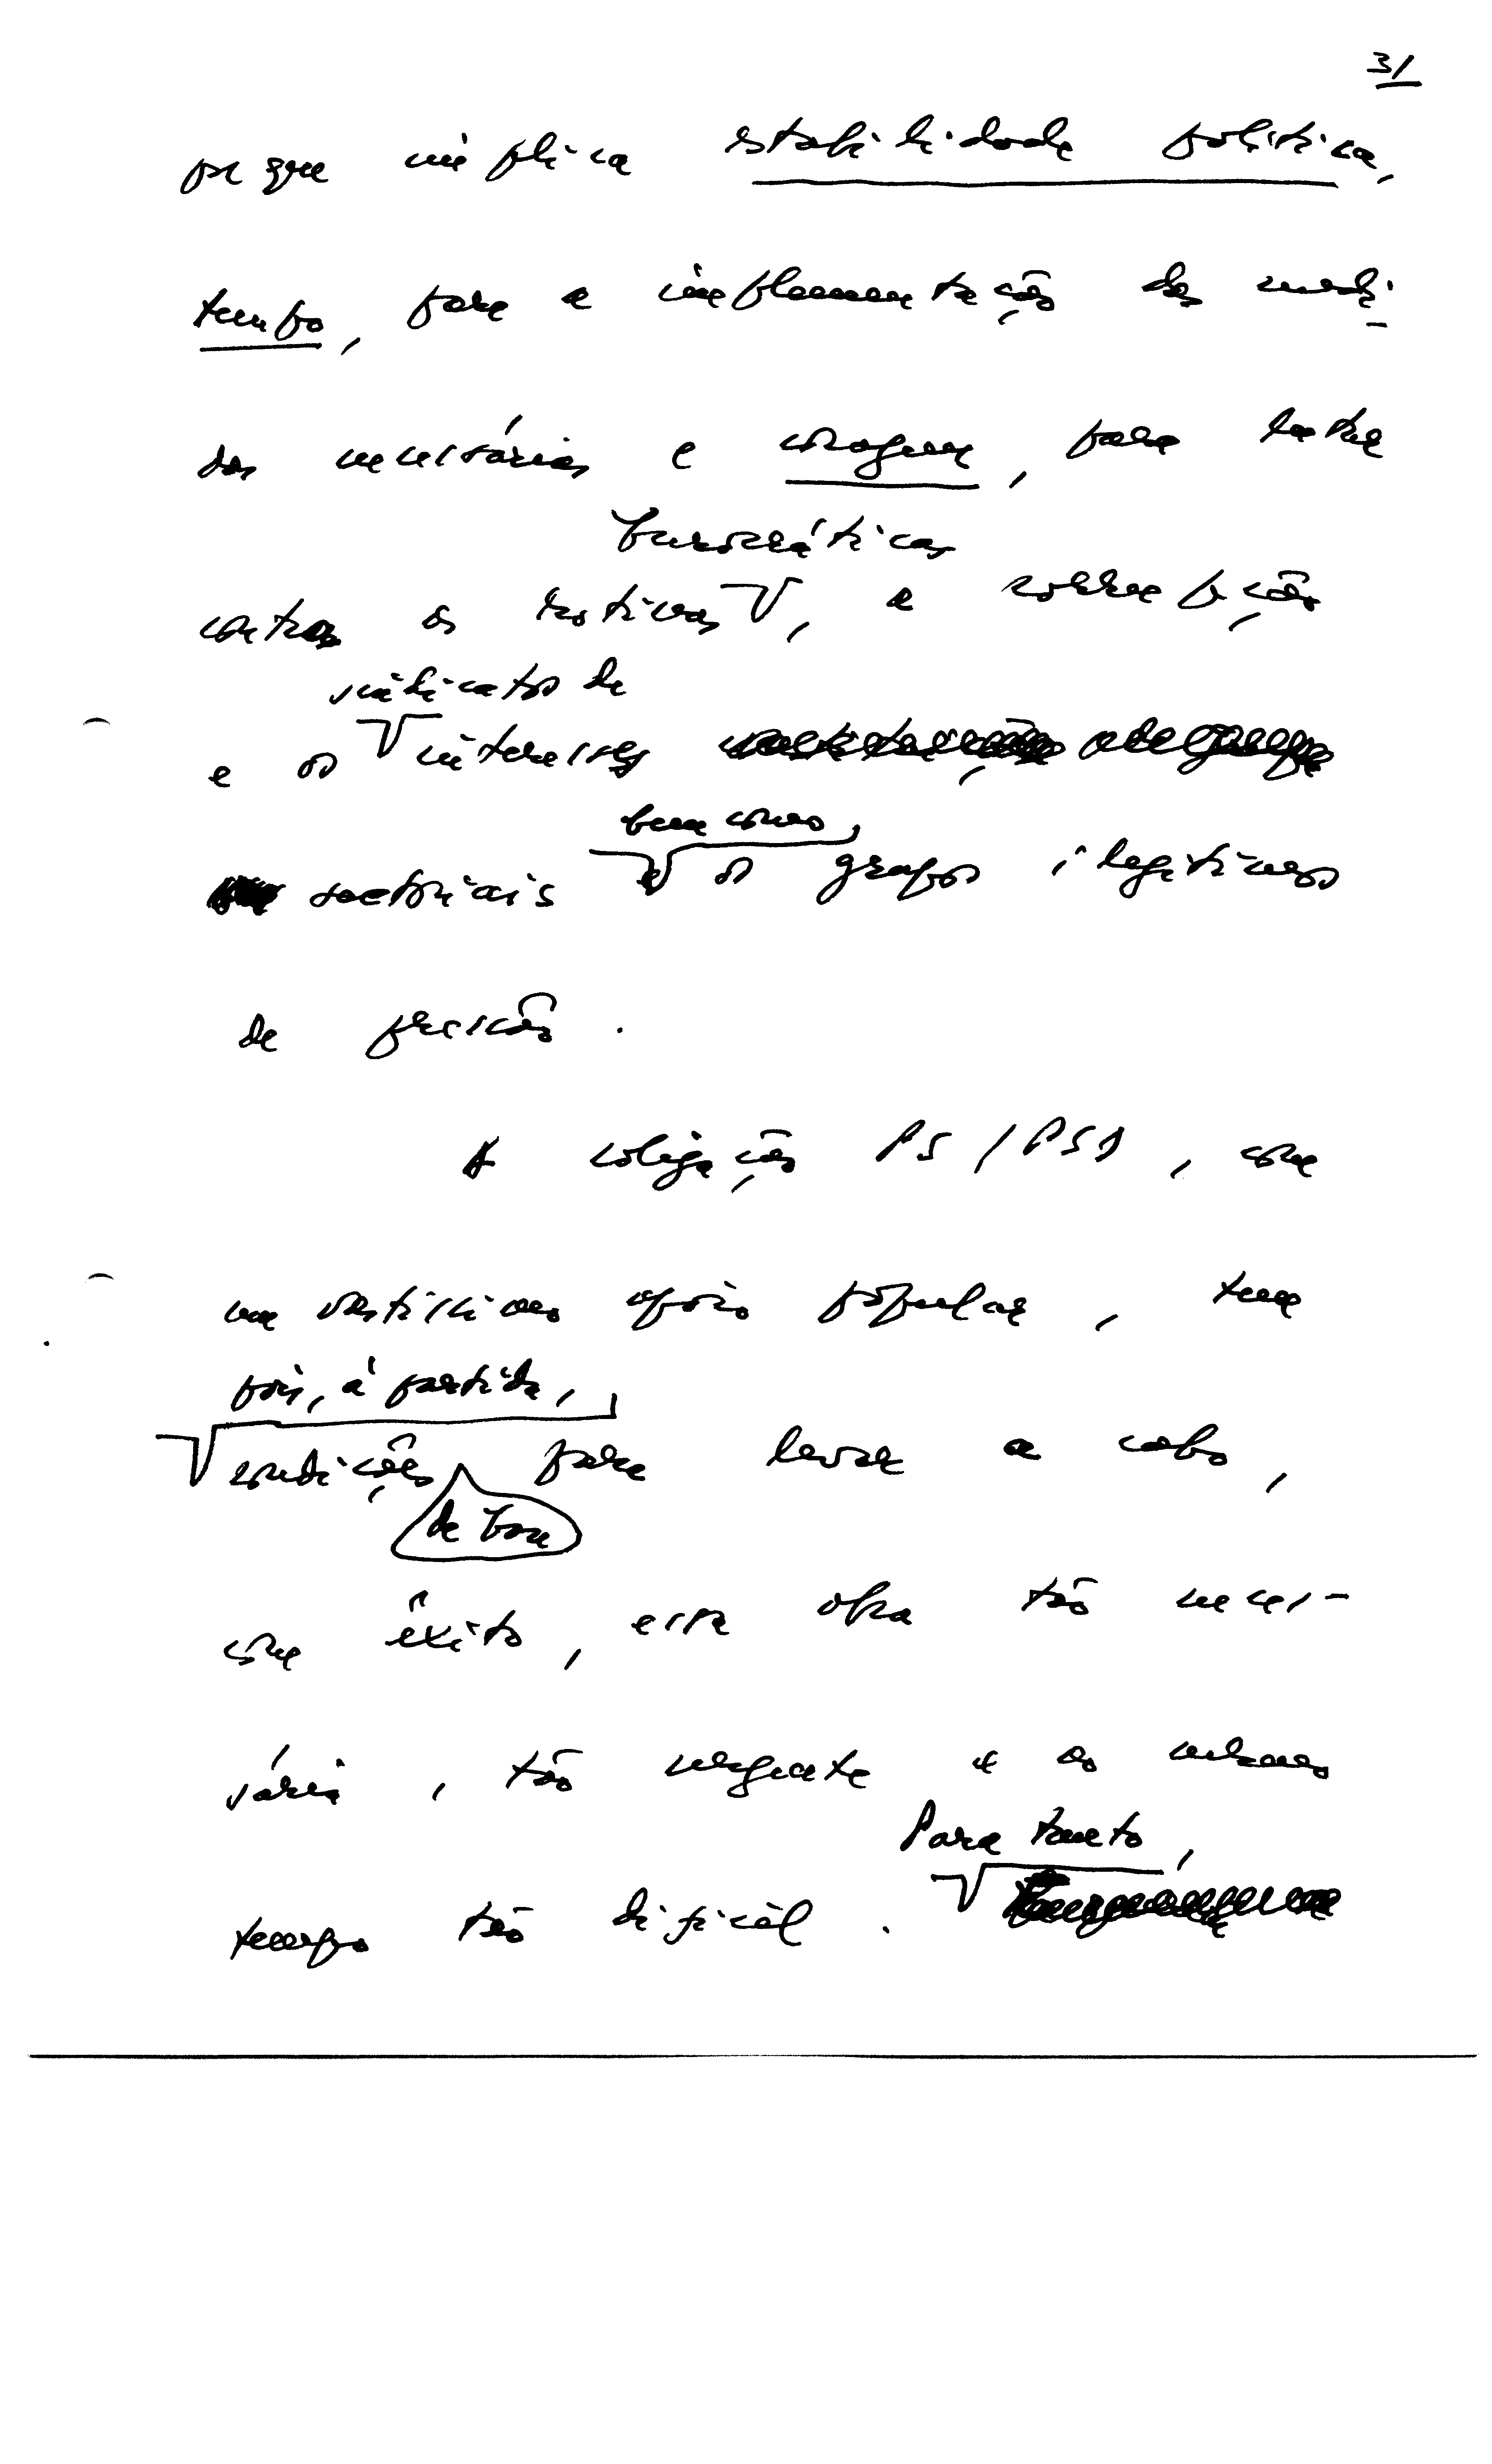 31
porque implica estabilidade política,
tempo, para a implementação das medi-
das necessárias e coragem, para lutar
burocráticas
contra as rotinas, a corrupção
sindicatos de
e os interesses
bem como,
sectoriais os grupos ilegítimos
de pressão.
A coligação PS/PSD, com
um vastíssimo apoio popular, tem
pois, à partida,
condições para levar a cabo,
de base
com êxito, esta obra tão neces-
sária, tão urgente e ao mesmo
Para tanto,
tempo tão difícil.